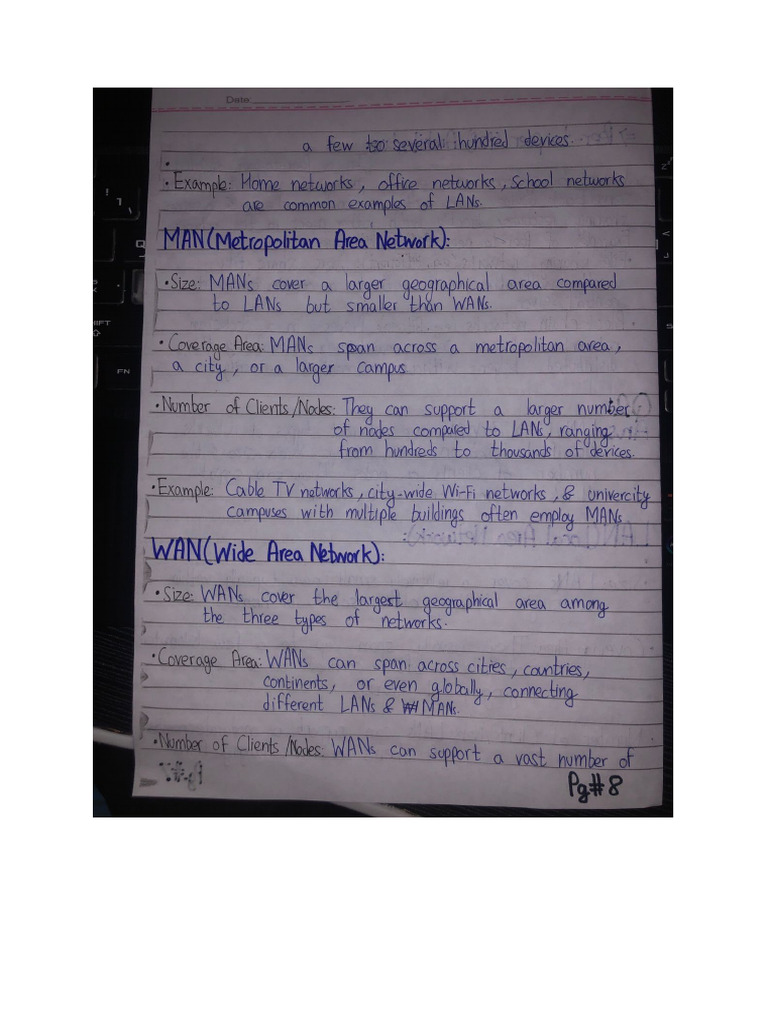 Date:
a few to several hundred devices.
• Example: Home networks, office networks, School networks
are common examples of LANs.
MAN(Metropolitan Area Network):
• Size: MANs cover a larger geographical area compared
to LANs but smaller than WANs.
• Coverage Area: MANs span across a metropolitan area,
a city, or a larger campus.
• Number of Clients/Nodes: They can support a larger number
of nodes compared to LANs, ranging
from hundreds to thousands of devices.
• Example: Cable TV networks, city-wide Wi-Fi networks, & univercity
campuses with multiple buildings often employ MANs.
WAN(Wide Area Network):
• Size: WANs cover the largest geographical area among
the three types of networks.
• Coverage Area: WANs can span across cities, countries,
continents, or even globally, connecting
different LANs & MANs.
• Number of Clients/Nodes: WANs can support a vast number of
Pg#8